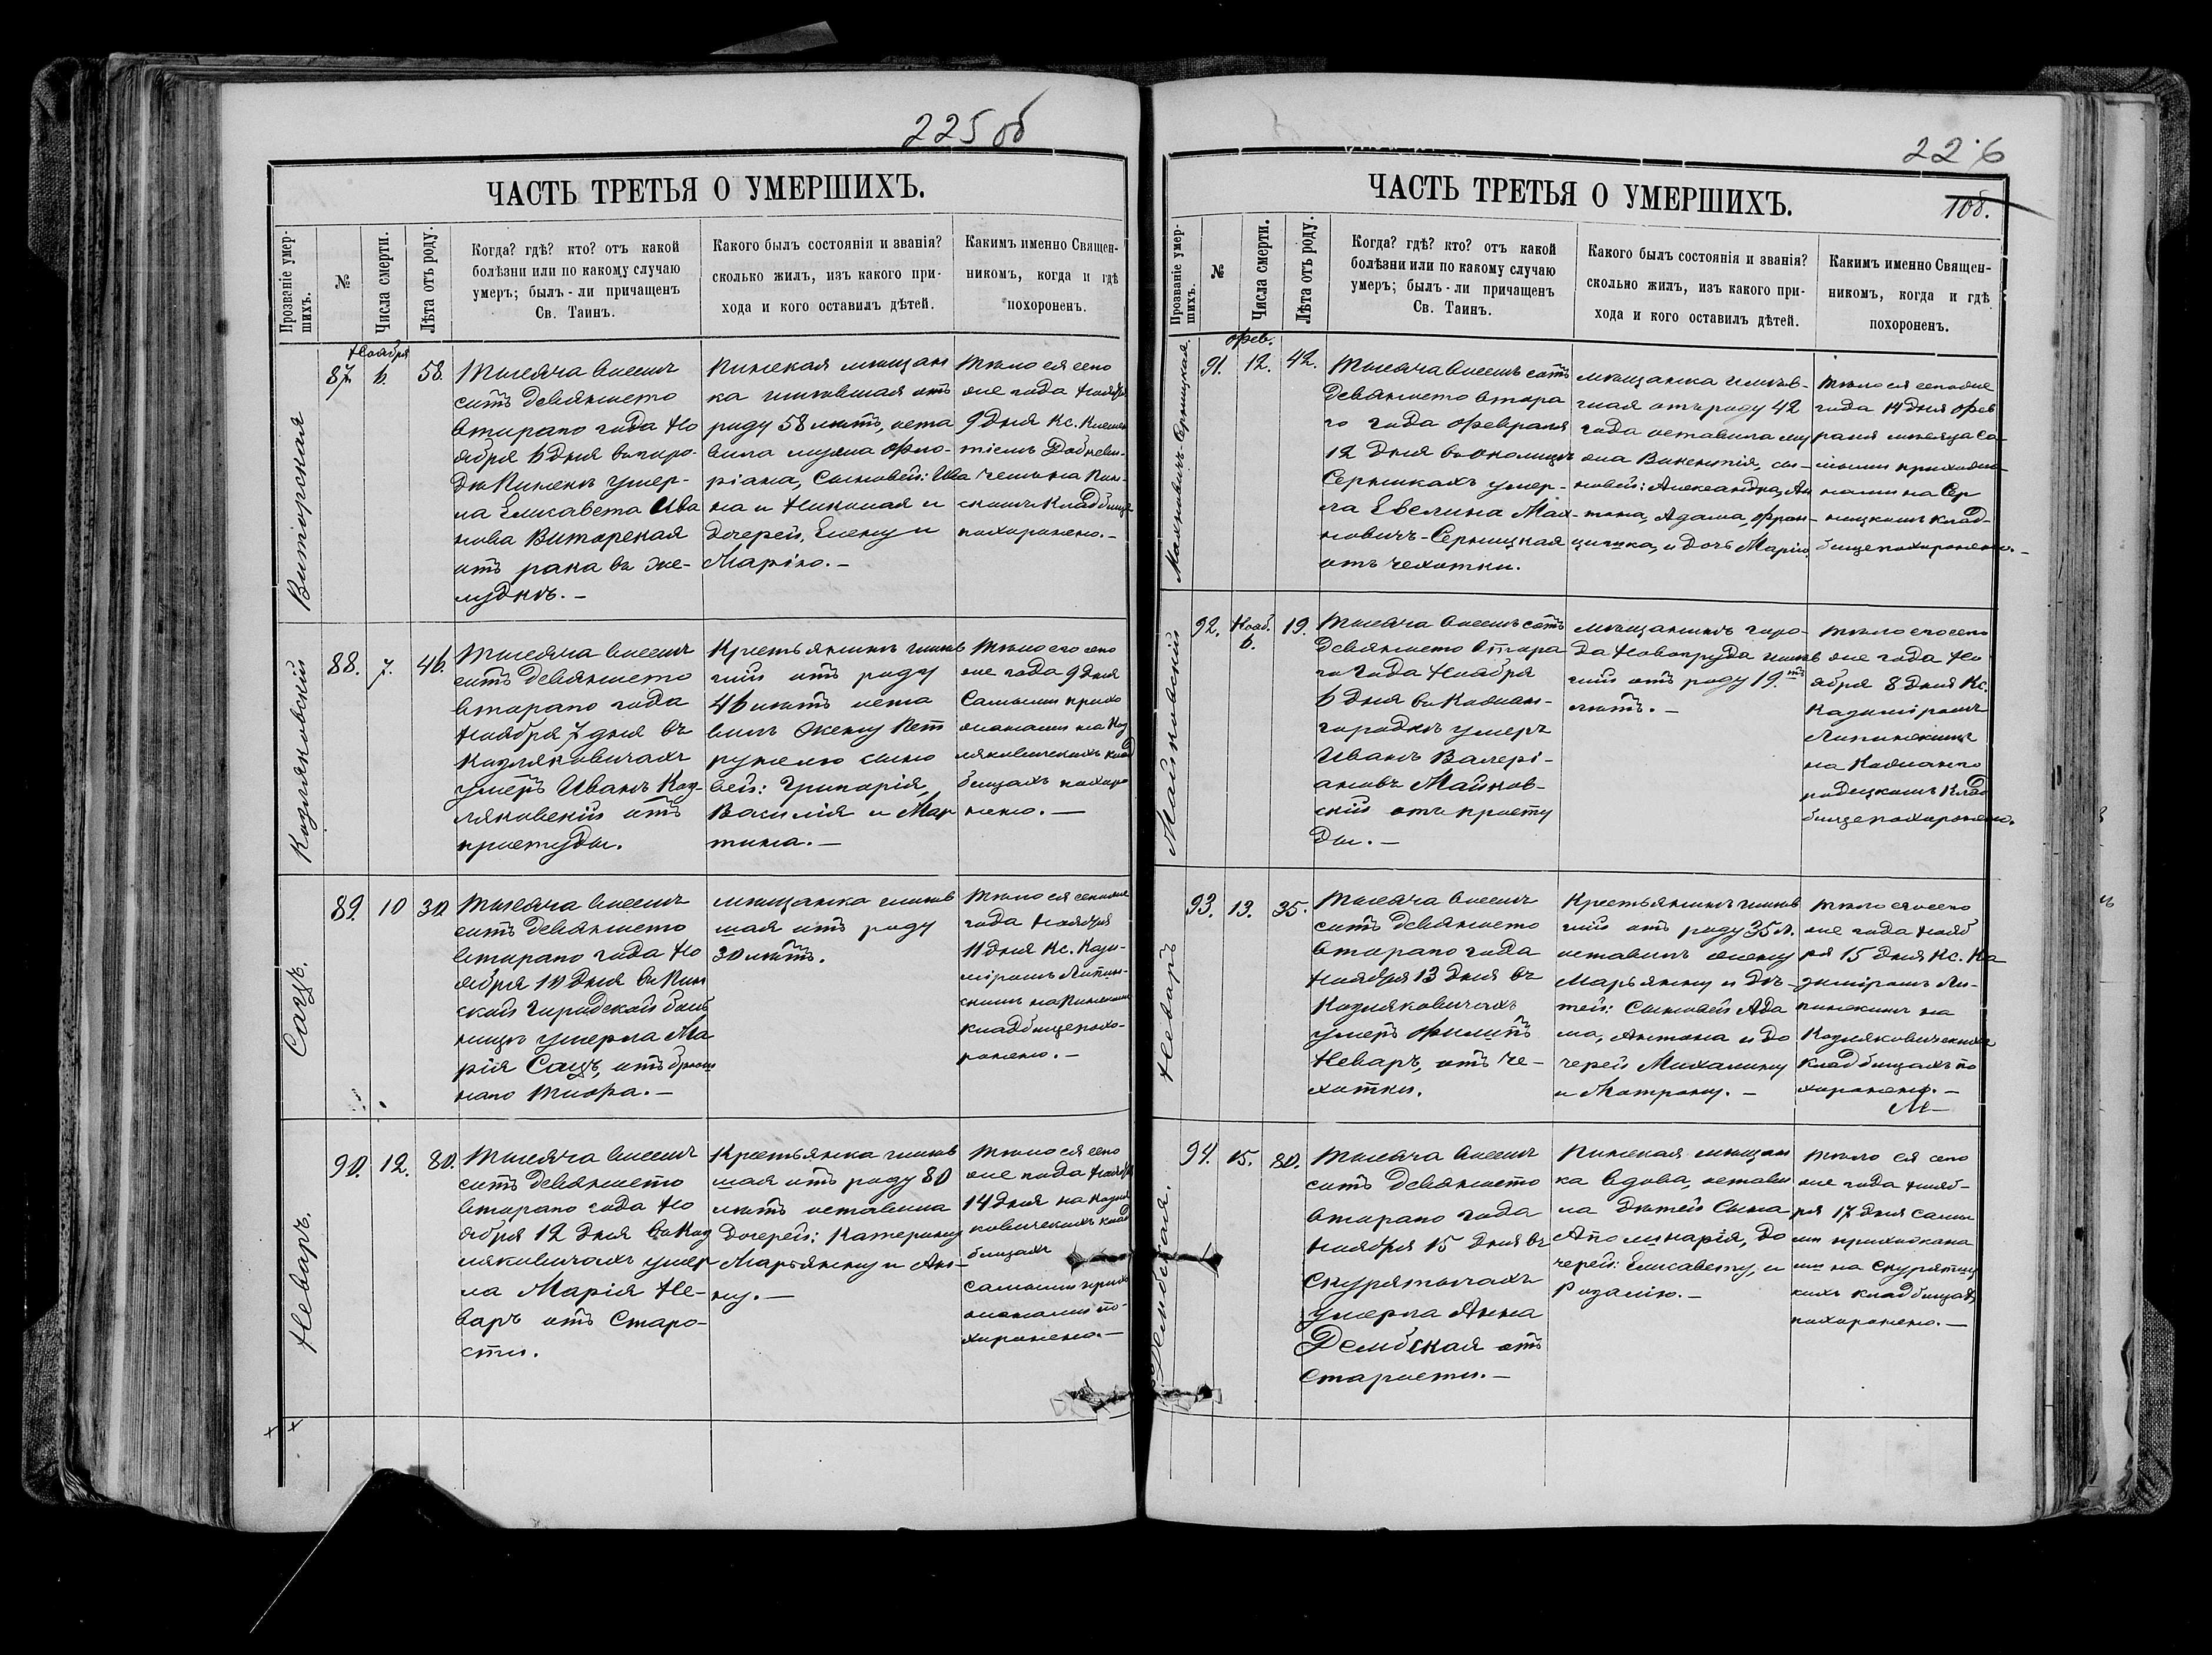 225 об
ЧАСТЬ ТРЕТЬЯ О УМЕРШИХЪ.
Прозваніе умер-
шихъ.
№
Числа смерти.
Лѣта отъ роду.
Когда? гдѣ? кто? отъ какой
болѣзни или по какому случаю
умеръ; былъ-ли причащенъ
Св. Таинъ.
Какого былъ состоянія и званія?
сколько жилъ, изъ какого при-
хода и кого оставилъ дѣтей.
Какимъ именно Священ-
никомъ, когда и гдѣ
похороненъ.
Виторская
87.
Ноября
6.
58.
Тысяча восемь
сотъ девяносто
втораго года Но
ября 6 дня въ горо-
дѣ Пинскѣ умер-
ла Елисавета Ива
нова Виторская
отъ рака въ же-
лудкѣ. —
Пинская мѣщан
ка имѣвшая отъ
роду 58 лѣтъ, оста
вила мужа Фло-
ріана, Сыновей: Ива
на и Николая и
дочерей, Елену и
Марію. —
Тѣло ея сего
же года Ноября
9 дня Кс. Климен
тіемъ Добневи-
чемъ на Пин-
скомъ Кладбище
похоронено. —
Козляковскій
88.
7.
46.
Тысяча восемь
сотъ девяносто
втораго года
Ноября 7 дня въ
Козляковичахъ
умеръ Иванъ Коз-
ляковскій отъ
простуды.
Крестьянинъ имѣв
шій отъ роду
46 лѣтъ оста
вилъ жену Пет
рунелю сыно
вей: Григорія,
Василія и Мар
тина. —
Тѣло его сего
же года 9 дня
Самыми прихо
жанами на Коз
ляковическихъ клад
бищахъ похоро
нено. —
Сацъ.
89.
10
30.
Тысяча восемь
сотъ девяносто
втораго года Но
ября 10 дня въ Пин
ской Городской боль
ницѣ умерла Ма
рія Сацъ, отъ брюш
наго тифа. —
мѣщанка имѣв
шая отъ роду
30 лѣтъ.
Тѣло ея сего же
года Ноября
11 дня Кс. Кази-
міромъ Липин-
скимъ на Пинскомъ
Кладбище похо-
ронено. —
Неваръ.
90.
12.
80.
Тысяча восемь
сотъ девяносто
втораго года Но
ября 12 дня въ Коз
ляковичахъ умер
ла Марія Не-
варъ отъ Старо-
сти.
Крестьянка имѣв
шая отъ роду 80
лѣтъ оставила
Дочерей: Катерину
Марьянну и Ан-
ну. —
Тѣло ея сего
же года Ноября
14 дня на Козля
ковическихъ клад
бищахъ
самыми прихо
жанами по-
хоронено. —
226
108.
ЧАСТЬ ТРЕТЬЯ О УМЕРШИХЪ.
Прозваніе умер-
шихъ.
№
Числа смерти.
Лѣта отъ роду.
Когда? гдѣ? кто? отъ какой
болѣзни или по какому случаю
умеръ; былъ-ли причащенъ
Св. Таинъ.
Какого былъ состоянія и званія?
сколько жилъ, изъ какого при-
хода и кого оставилъ дѣтей.
Какимъ именно Священ-
никомъ, когда и гдѣ
похороненъ.
Махновичъ-Серницкая.
91.
Фев.
12.
42.
Тысяча восемь сотъ
девяносто втора
го года Февраля
12 Дня въ околицѣ
Серникахъ умер-
ла Евелина Мах-
новичъ-Серницкая
отъ чехотки.
мѣщанка имѣв-
шая отъ роду 42
года оставила му
жа Викентія, сы-
новей: Александра, Ан
тона, Адама, Фран-
цишка, и дочь Марію.
Тѣло ея сего же
года 14 дня Фев
раля мѣсяца Са-
мыми прихожа-
нами на Сер
ницкомъ клад-
бище похоронено. —
Майновскій
92.
Нояб.
6.
19.
Тысяча восемь сотъ
девяносто втора
го Года Ноября
6 дня въ Кожан-
городкѣ умеръ
Иванъ Валері-
ановъ Майнов-
скій отъ просту
ды. —
мѣщанинъ горо-
да Новогруда имѣв
шій отъ роду 19.ть
лѣтъ. —
Тѣло его сего
же года Но
ября 8 дня Кс.
Казиміромъ
Липинскимъ
на Кожанго
родецкомъ Клад
бище похоронено.
Неваръ
93.
13.
35.
Тысяча восемь
сотъ девяносто
втораго года
Ноября 13 дня въ
Козляковичахъ
умеръ Филипъ
Неваръ, отъ че-
хотки.
Крестьянинъ имѣв
шій отъ роду 35 л.
оставилъ жену
Марьянну и дѣ-
тей: Сыновей Ада
ма, Антона и до
черей Михалину
и Матрону. —
Тѣло его сего
же года Нояб
ря 15 дня Кс. Ка
зиміромъ Ли-
пинскимъ на
Козляковическихъ
Кладбищахъ по
хоронено. —
Дембская.
94.
15.
80.
Тысяча восемь
сотъ девяносто
втораго года
Ноября 15 дня въ
Скурятычахъ
умерла Анна
Дембская отъ
Старости. —
Пинская мѣщан
ка вдова, остави
ла дѣтей Сына
Аполинарія, до
черей: Елисавету, и
Розалію. —
Тѣло ея сего
же года Нояб-
ря 17 дня самы
ми прихожана
ми на Скурятиц
кихъ кладбищахъ
похоронено. —